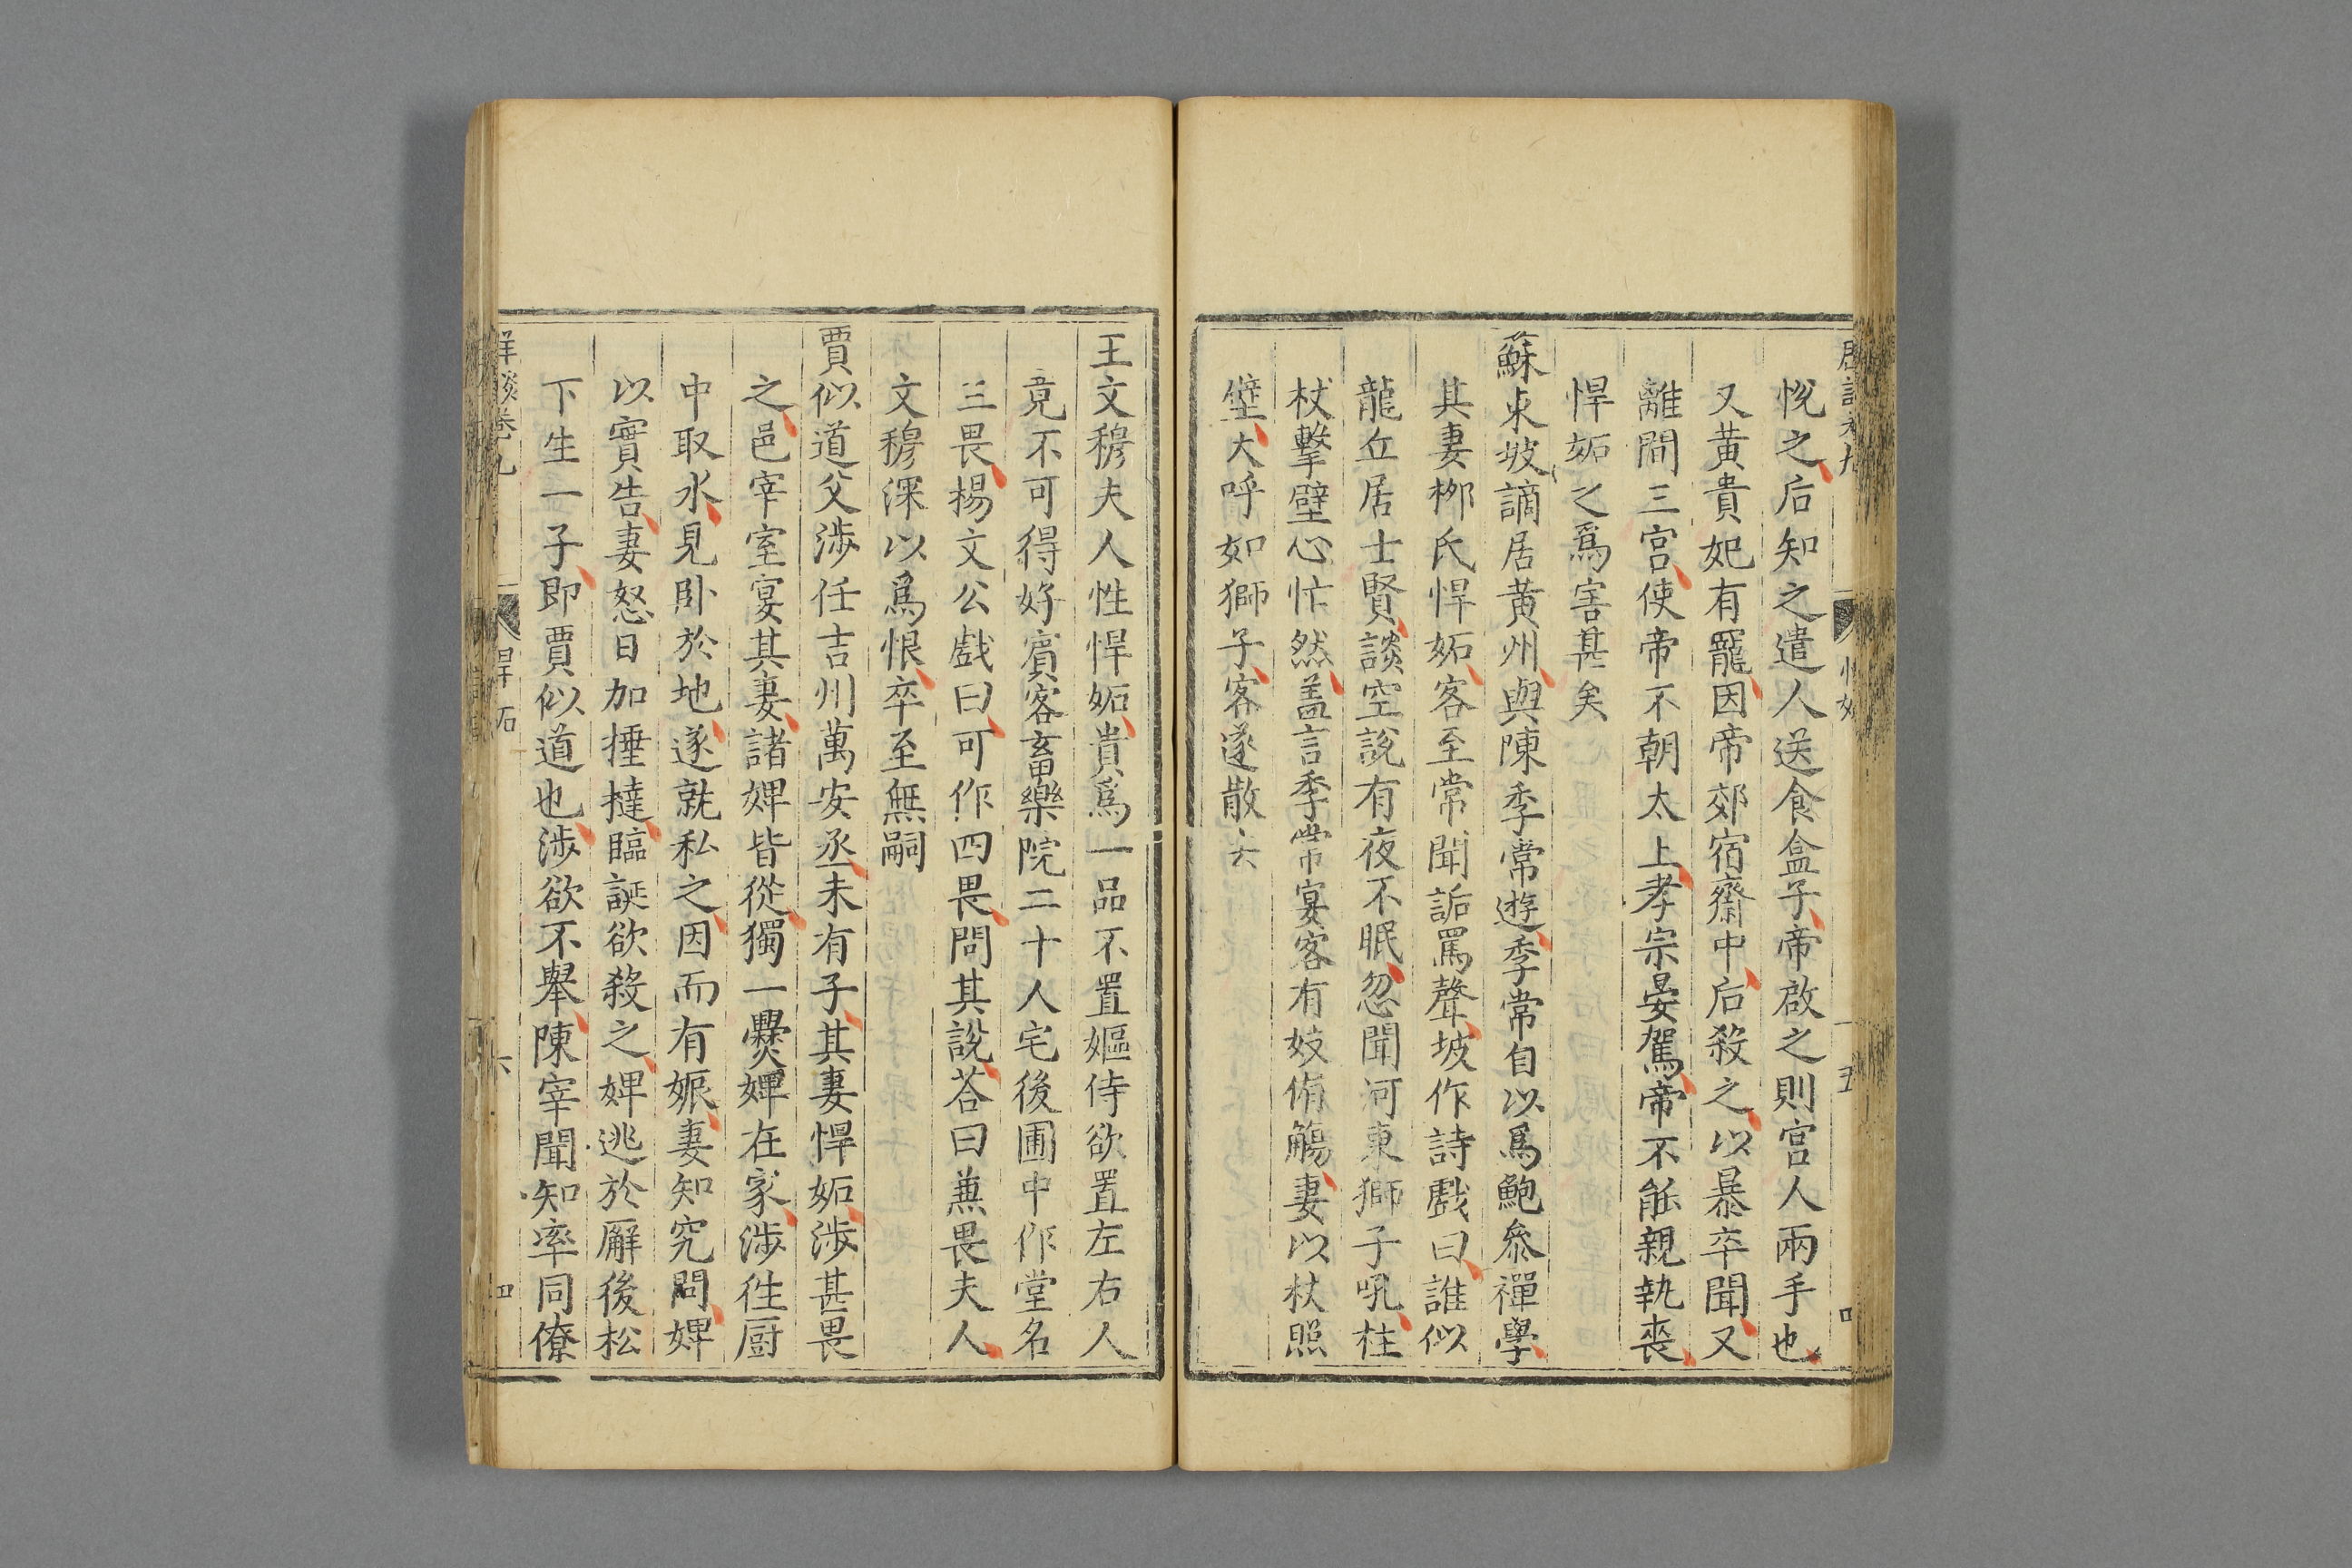 悅之后知之遣人送食盒子帝啟之則宫人兩手也
又黃貴妃有寵因帝郊宿齋中后殺之以暴卒聞又
離間三宫使帝不朝太上孝宗晏駕帝不能親執喪
悍妬之爲害甚矣
蘇東坡謫居黃州與陳季常遊季常自以爲飽叅禪學
其妻栁氏悍妬客至常聞詬罵聲坡作詩戲曰誰似
龍丘居士賢談空說有夜不眠忽聞河東獅子吼柱
杖擊壁心忙然盖言季常宴客有妓侑觴妻以杖照
壁大呼如獅子客遂散去
王文穆夫人性悍妬貴爲一品不置嫗侍欲置左右人
竟不可得好賓客畜樂院二十人宅後圃中作堂名
三畏楊文公戲曰可作四畏問其說荅曰兼畏夫人
文穆深以爲恨卒至無嗣
賈似道父涉任吉州萬安丞未有子其妻悍妬涉甚畏
之邑宰室宴其妻諸婢皆從獨一爨婢在家涉徃厨
中取水見卧於地遂就私之因而有娠妻知究問婢
以實告妻怒日加捶撻臨誕欲殺之婢逃於廨後松
下生一子即賈似道也涉欲不舉陳宰聞知率同僚